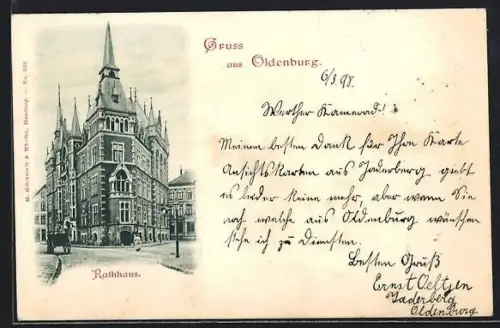 Gruss
aus Oldenburg.
6/3.98.
Werther Kamerad!
Meinem besten Dank für Ihre Karte
Ansichtskarten aus Jaderberg giebt
es leider keine mehr, aber wenn Sie
noch welche aus Oldenburg wünschen
stehe ich zu Diensten.
Besten Gruß
Ernst Oeltjen
Jaderberg
Oldenburg
Rathhaus.
M. Glückstadt & Münden, Hamburg. — No.